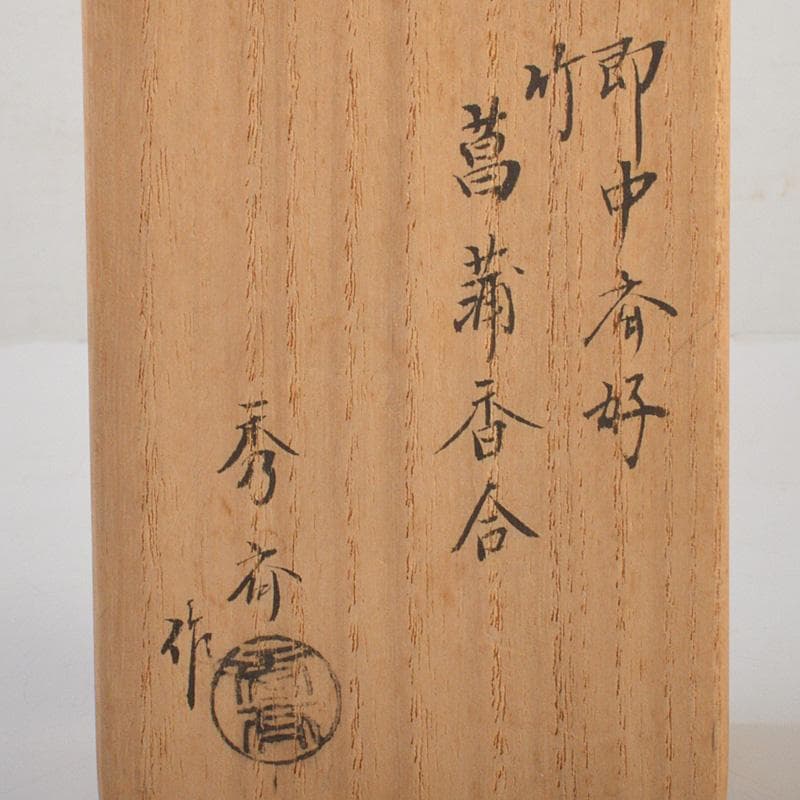 即中斎好
竹
菖蒲香合
秀斎
作